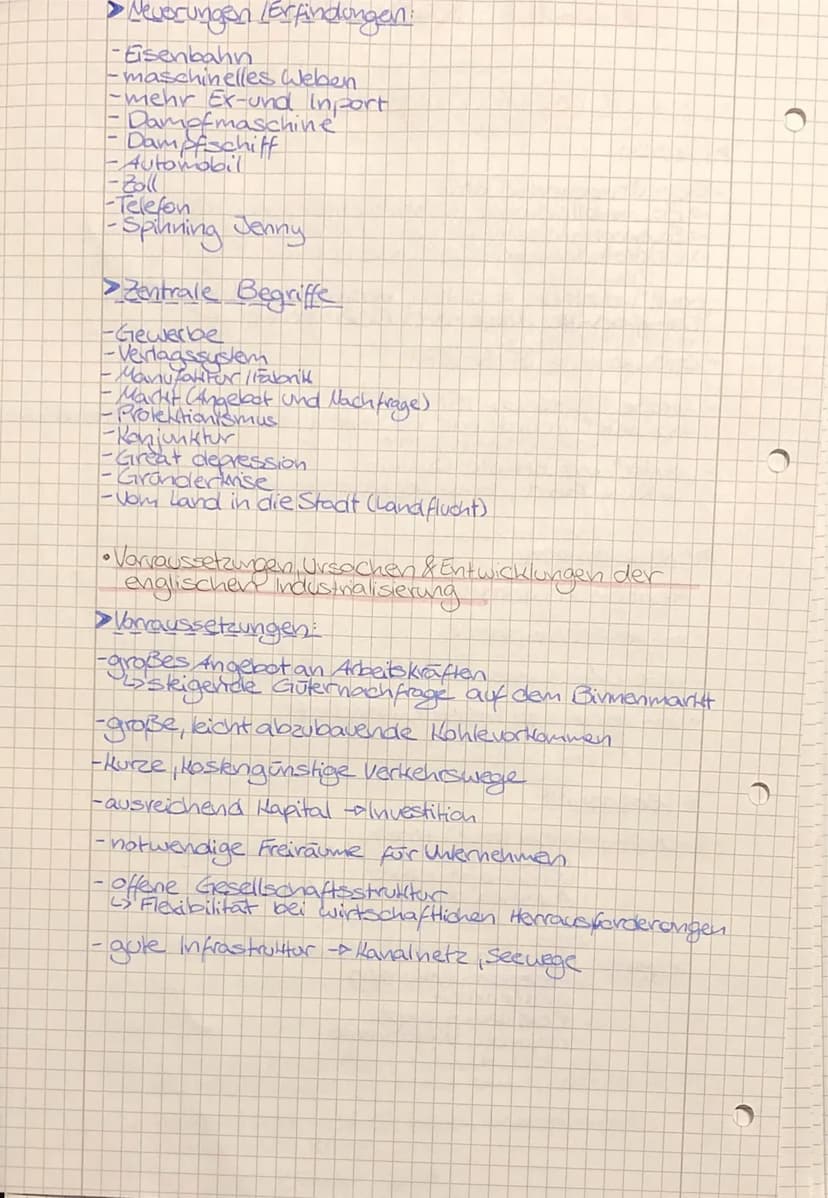 > Neuerungen / Erfindungen:
- Eisenbahn
- maschinelles Weben
- mehr Ex- und Inport
- Dampfmaschine
- Dampfschiff
- Automobil
- Zoll
- Telefon
- Spinning Jenny
> Zentrale Begriffe
- Gewerbe
- Verlagssystem
- Manufaktur / Fabrik
- Markt (Angebot und Nachfrage)
- Protektionismus
- Konjunktur
- Great depression
- Gründerkrise
- vom Land in die Stadt (Landflucht)
• Vorraussetzungen, Ursachen & Entwicklungen der
englischen Industrialisierung
> Vorraussetzungen:
- großes Angebot an Arbeitskräften
↳ steigende Güternachfrage auf dem Binnenmarkt
- große, leicht abzubauende Kohlevorkommen
- kurze, kostengünstige Verkehrswege
- ausreichend Kapital → Investition
- notwendige Freiräume für Unternehmen
- offene Gesellschaftsstruktur
↳ Flexibilität bei wirtschaftlichen Herrausforderungen
- gute Infrastruktur → Kanalnetz, Seewege